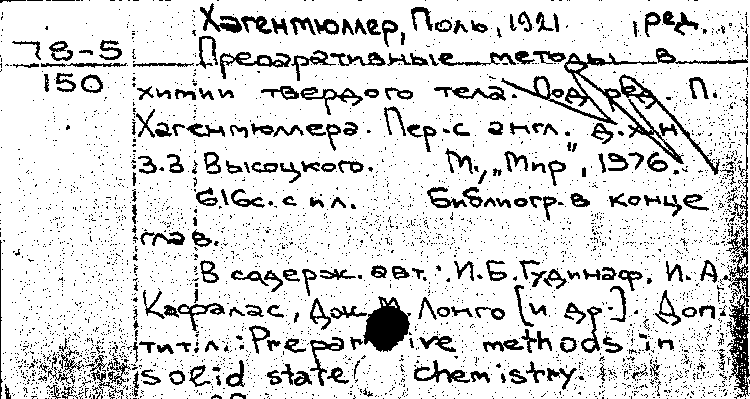 Хагенмюллер, Поль, 1921 , ред.
78-5 Препаративные методы в
150 химии твердого тела. Под ред. П.
Хагенмюллера. Пер. с англ. д.х.н.
З.З Высоцкого. М., „Мир", 1976.
616с. с ил. Библиогр. в конце
глав.
В содерж. авт.: И.Б. Гудинаф, И.А.
Кафалас, Дж. М. Лонго [и др.]. Доп.
тит.л.: Preparative methods in
solid state chemistry.